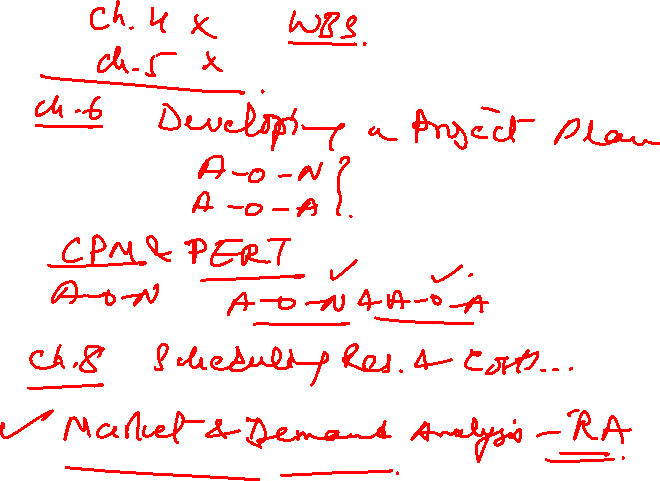 Ch. 4 x WBS.
ch. 5 x
ch. 6 Developing a Project Plan
A-O-N
A-O-A
CPM & PERT
A-O-N A-O-N & A-O-A
Ch. 8 Scheduling Res. & Costs...
✓ Market & Demand Analysis - RA